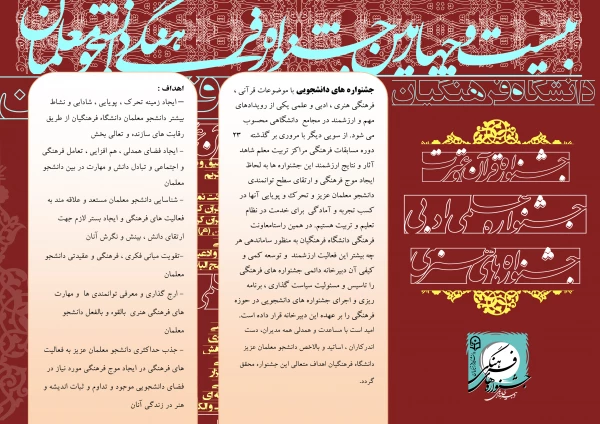 بیست و چهارمین جشنواره فرهنگی دانشجو معلمان
دانشگاه فرهنگیان
جشنواره قرآن عترت
جشنواره علمی ادبی
جشنواره های هنری
جشنواره های دانشجویی با موضوعات قرآنی ،
فرهنگی هنری ، ادبی و علمی یکی از رویدادهای
مهم و ارزشمند در مجامع دانشگاهی محسوب
می شود. از سویی دیگر با مروری بر گذشته ۲۳
دوره مسابقات فرهنگی مراکز تربیت معلم شاهد
آثار و نتایج ارزشمند این جشنواره ها به لحاظ
ایجاد موج فرهنگی و ارتقای سطح توانمندی
دانشجو معلمان عزیز و تحرک و پویایی آنها در
کسب تجربه و آمادگی برای خدمت در نظام
تعلیم و تربیت هستیم. در همین راستامعاونت
فرهنگی دانشگاه فرهنگیان به منظور ساماندهی هر
چه بیشتر این فعالیت ارزشمند و توسعه کمی و
کیفی آن دبیرخانه دائمی جشنواره های فرهنگی
را تاسیس و مسئولیت سیاست گذاری ، برنامه
ریزی و اجرای جشنواره های دانشجویی در حوزه
فرهنگی را بر عهده این دبیرخانه قرار داده است.
امید است با مساعدت و همدلی همه مدیران، دست
اندرکاران ، اساتید و بالاخص دانشجو معلمان عزیز
دانشگاه فرهنگیان اهداف متعالی این جشنواره محقق
گردد.
اهداف :
– ایجاد زمینه تحرک ، پویایی ، شادابی و نشاط
بیشتر دانشجو معلمان دانشگاه فرهنگیان از طریق
رقابت های سازنده و تعالی بخش
- ایجاد فضای همدلی ، هم افزایی ، تعامل فرهنگی
و اجتماعی و تبادل دانش و مهارت در بین دانشجو
معلمان
- شناسایی دانشجو معلمان مستعد و علاقه مند به
فعالیت های فرهنگی و ایجاد بستر لازم جهت
ارتقای دانش ، بینش و نگرش آنان
-تقویت مبانی فکری ، فرهنگی و عقیدتی دانشجو
معلمان
- ارج گذاری و معرفی توانمندی ها و مهارت
های فرهنگی هنری بالقوه و بالفعل دانشجو
معلمان
- جذب حداکثری دانشجو معلمان عزیز به فعالیت
های فرهنگی در ایجاد موج فرهنگی مورد نیاز در
فضای دانشجویی موجود و تداوم و ثبات اندیشه و
هنر در زندگی آنان